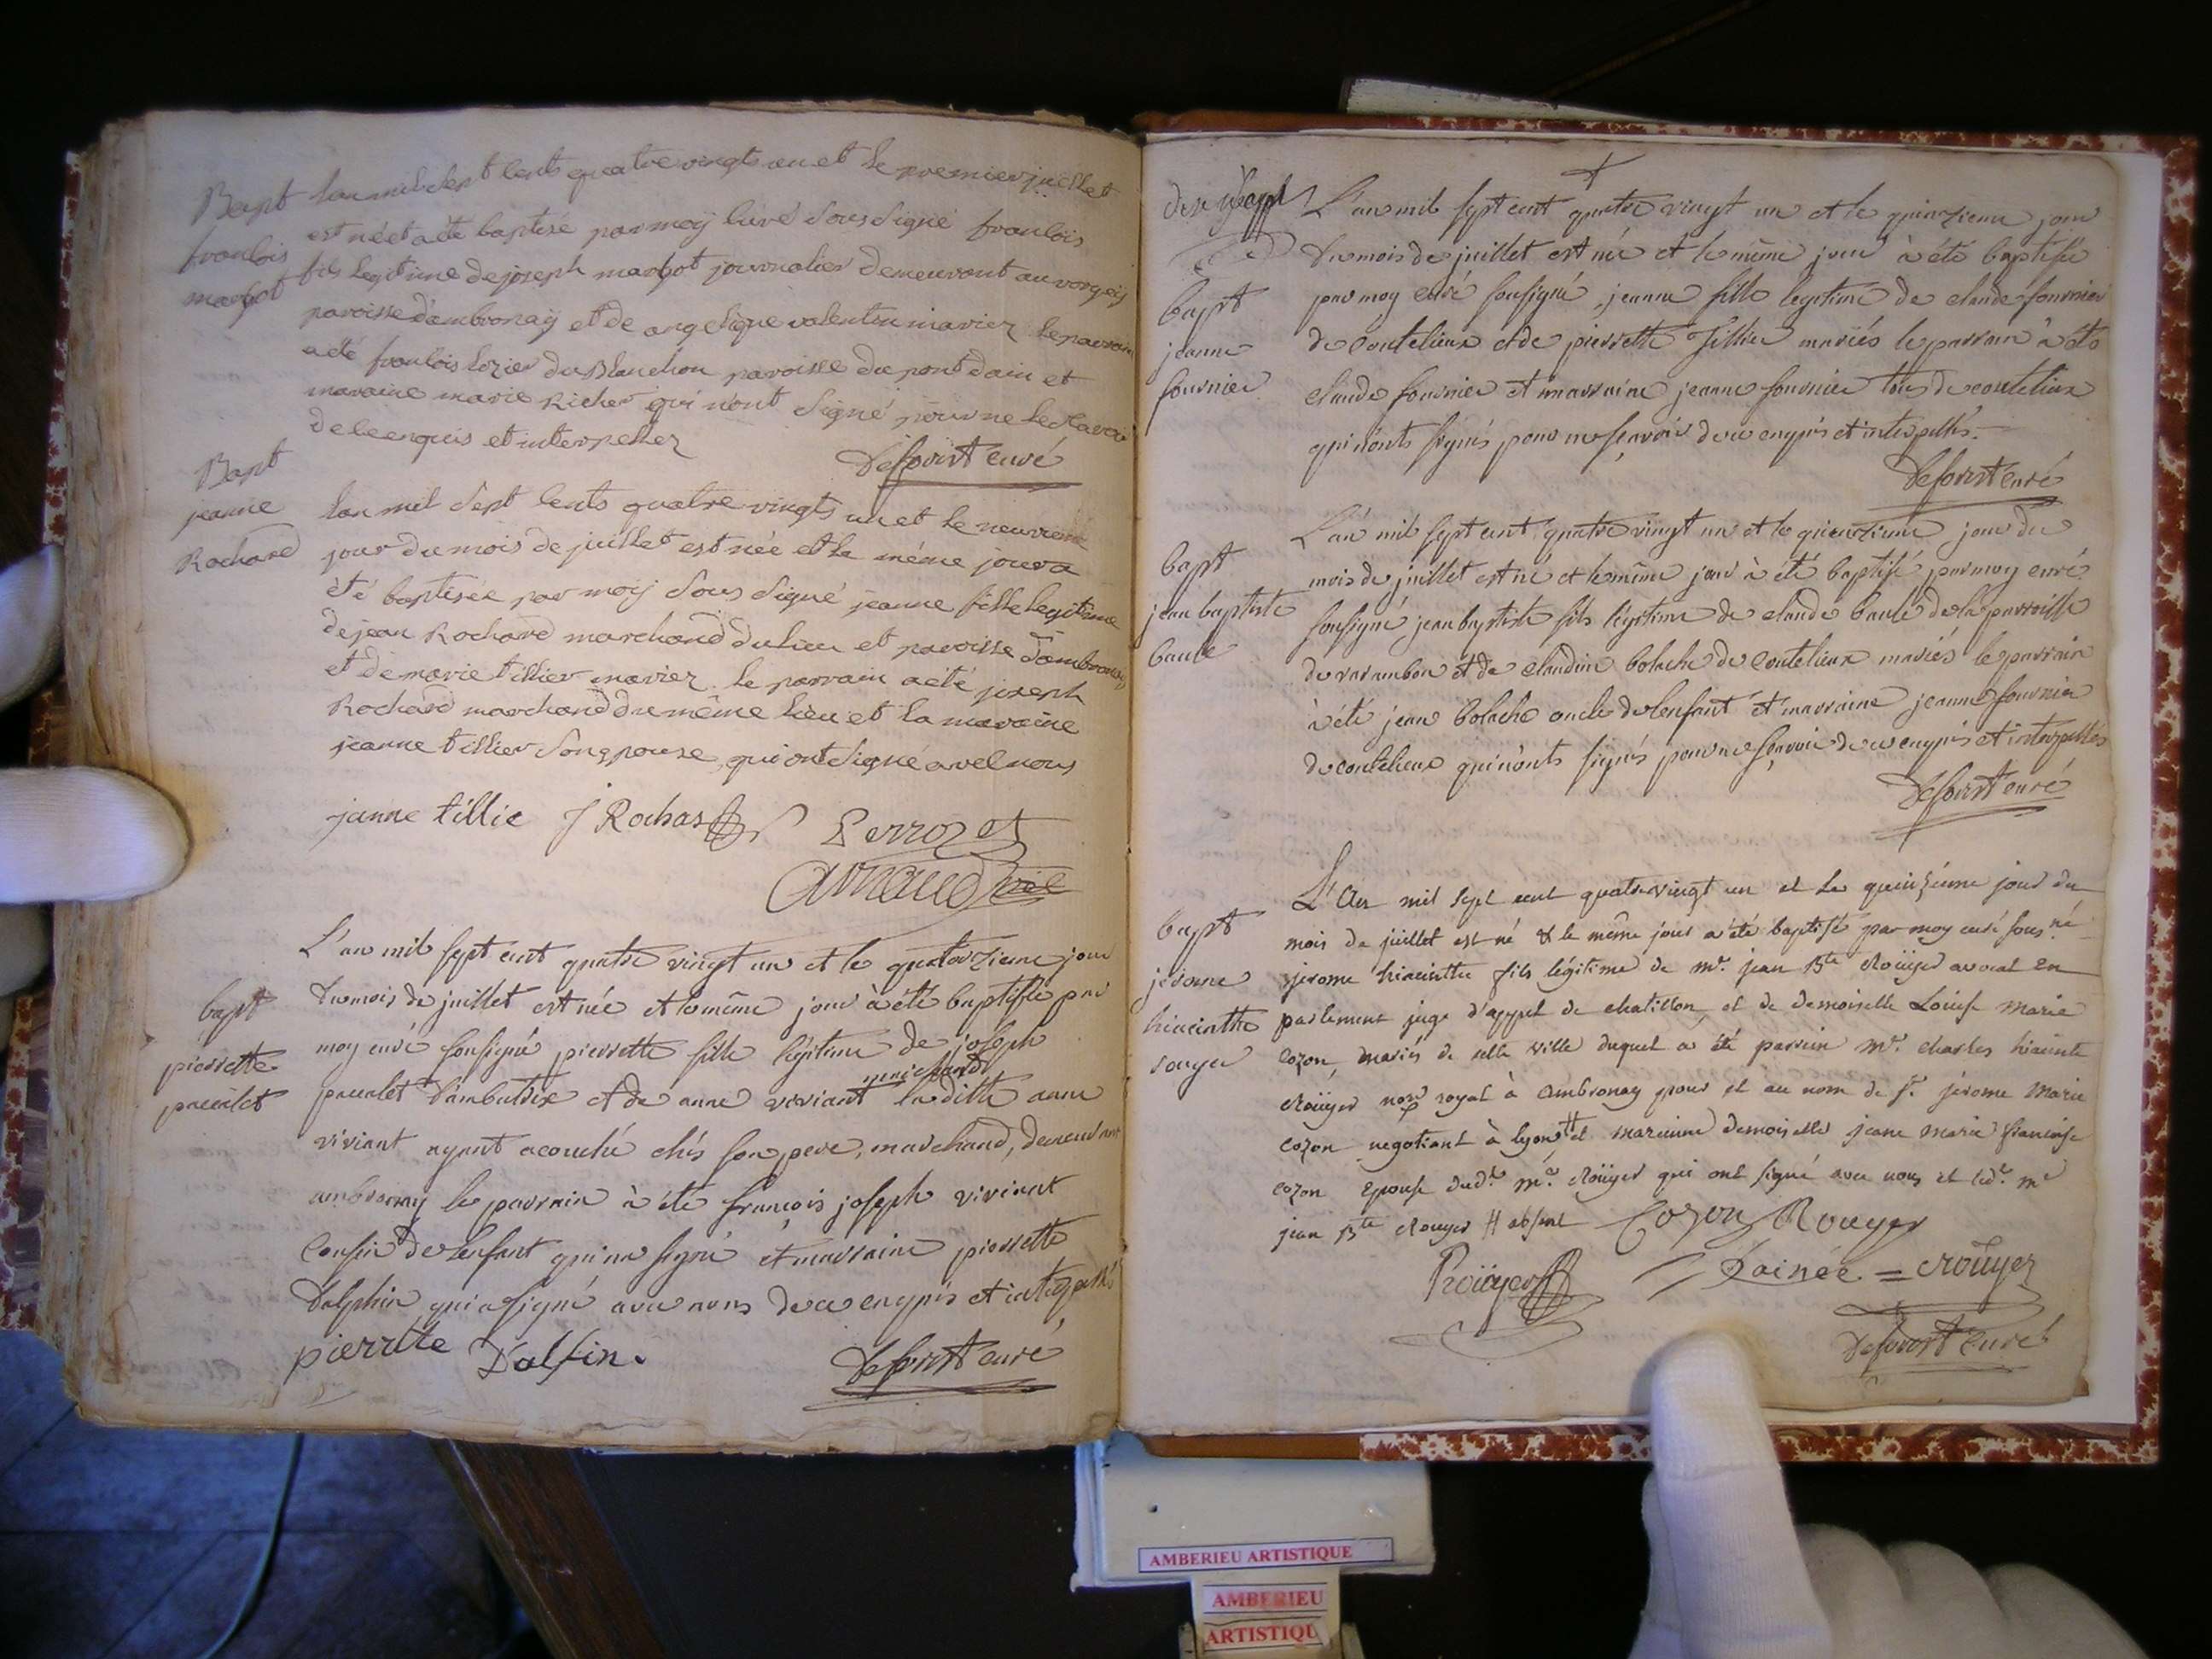 Bapt
francois
margot
Lan mil sept cents quatre vingts un et le premier juillet
est né et a été baptisé par moy curé Sous Signé francois
fils legitime de joseph margot journalier demeurant au
paroisse d'ambronay et de angelique valentin mariez le parrain
a eté francois du Blanchon paroisse du pont dain et
maraine marie Richer qui n'ont Signé pour ne le Scavoir
de ce enquis et interpellez
Desforist curé
Bapt
jeanne
Rochard
Lan mil Sept cents quatre vingts un et le neuvieme
jour du mois de juillet est née et le même jour a
été baptisée par moy Sous Signé jeanne fille legitime
de jean Rochard marchand du lieu et paroisse d'ambronay
et de marie tillier mariez. le parrain a eté joseph
Rochard marchand du même lieu et la maraine
jeanne tillier Son epouse, qui ont Signé avec nous
janne tillie J Rochas Perrozet
arnaud vic
bapt
pierrette
L'an mil sept cent quatre vingt un et le quatorzieme jour
du mois de juillet est née et le même jour à été baptisée par
moy curé sousigné pierrette fille légitime de joseph
d'ambutrix et de anne viviant marchand laditte anne
viviant ayant acouché chés son pere, marchand, demeurant
ambronay le parrain à été françois joseph viviant
cousin de lenfant qui na signé et marraine pierrette
dalphin qui a signé avec nous de ce enquis et interpellés
pierrete Dalfin.
Desforist curé
bapt
jeanne
fournier
L'an mil sept cent quatre vingt un et le quinzieme jour
du mois de juillet est née et le même jour à été baptisée
par moy curé sousigné, jeanne fille legitime de claude fournier
de coutelieux et de pierrette Tillier mariés le parrain à été
claude fournier et marraine jeanne fournier tous de coutelieux
qui n'onts signés pour ne sçavoir de ce enquis et interpellés.
Desforist curé
bapt
jean baptiste
baule
L'an mil sept cent quatre vingt un et le quinzieme jour du
mois de juillet est né et le même jour à été baptisé par moy curé
sousigné jean baptiste fils légitime de claude baulé de la parroisse
de varambon et de claudine bolache de coutelieux mariés le parrain
à été jean bolache oncle de lenfant et marraine jeanne fournier
de coutelieux qui n'onts signés pour ne sçavoir de ce enquis et interpellés
Desforist curé
bapt
jerome
hiacinthe
rouyer
L'an mil sept cent quatre vingt un et le quinzieme jour du
mois de juillet est né & le même jour a été baptisé par moy curé sous.né
jerome hiacinthe fils légitime de mr. jean Bte Roüyer avocat en
parlement juge d'appel de chatillon, et de demoiselle Louise Marie
cozon, mariés de cette ville duquel a été parrein mr. charles hiacinte
Roüyer nore royal à ambronay pour et au nom de sr. jérome Marie
cozon negotiant à lyon # et mareinne demoiselle jeane Marie francoise
cozon Epouse dudt. mr. Roüyer qui ont signé avec nous et ledt. mr
jean Bte Rouyer # absent Cozon Rouyer
Roüyer L'ainée = Roüyer
Desforist curé
AMBERIEU ARTISTIQUE
AMBERIEU
ARTISTIQU